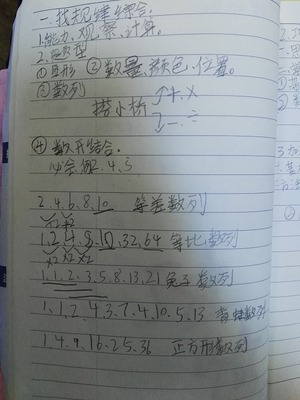 一、找规律综合。
1.能力、观察、计算。
2.题型
①图形 ②数量、颜色、位置。
③数列
搭小桥 +、×
一、÷
④数形结合。
必会例4、5
2、4、6、8、10 等差数列
+2 +2
1、2、4、8、16、32、64 等比数列
×2 ×2 ×2
1、1、2、3、5、8、13、21 兔子数列
1、1、2、4、3、7、4、10、5、13 数列
1 4、9、16、25、36 正方形数列